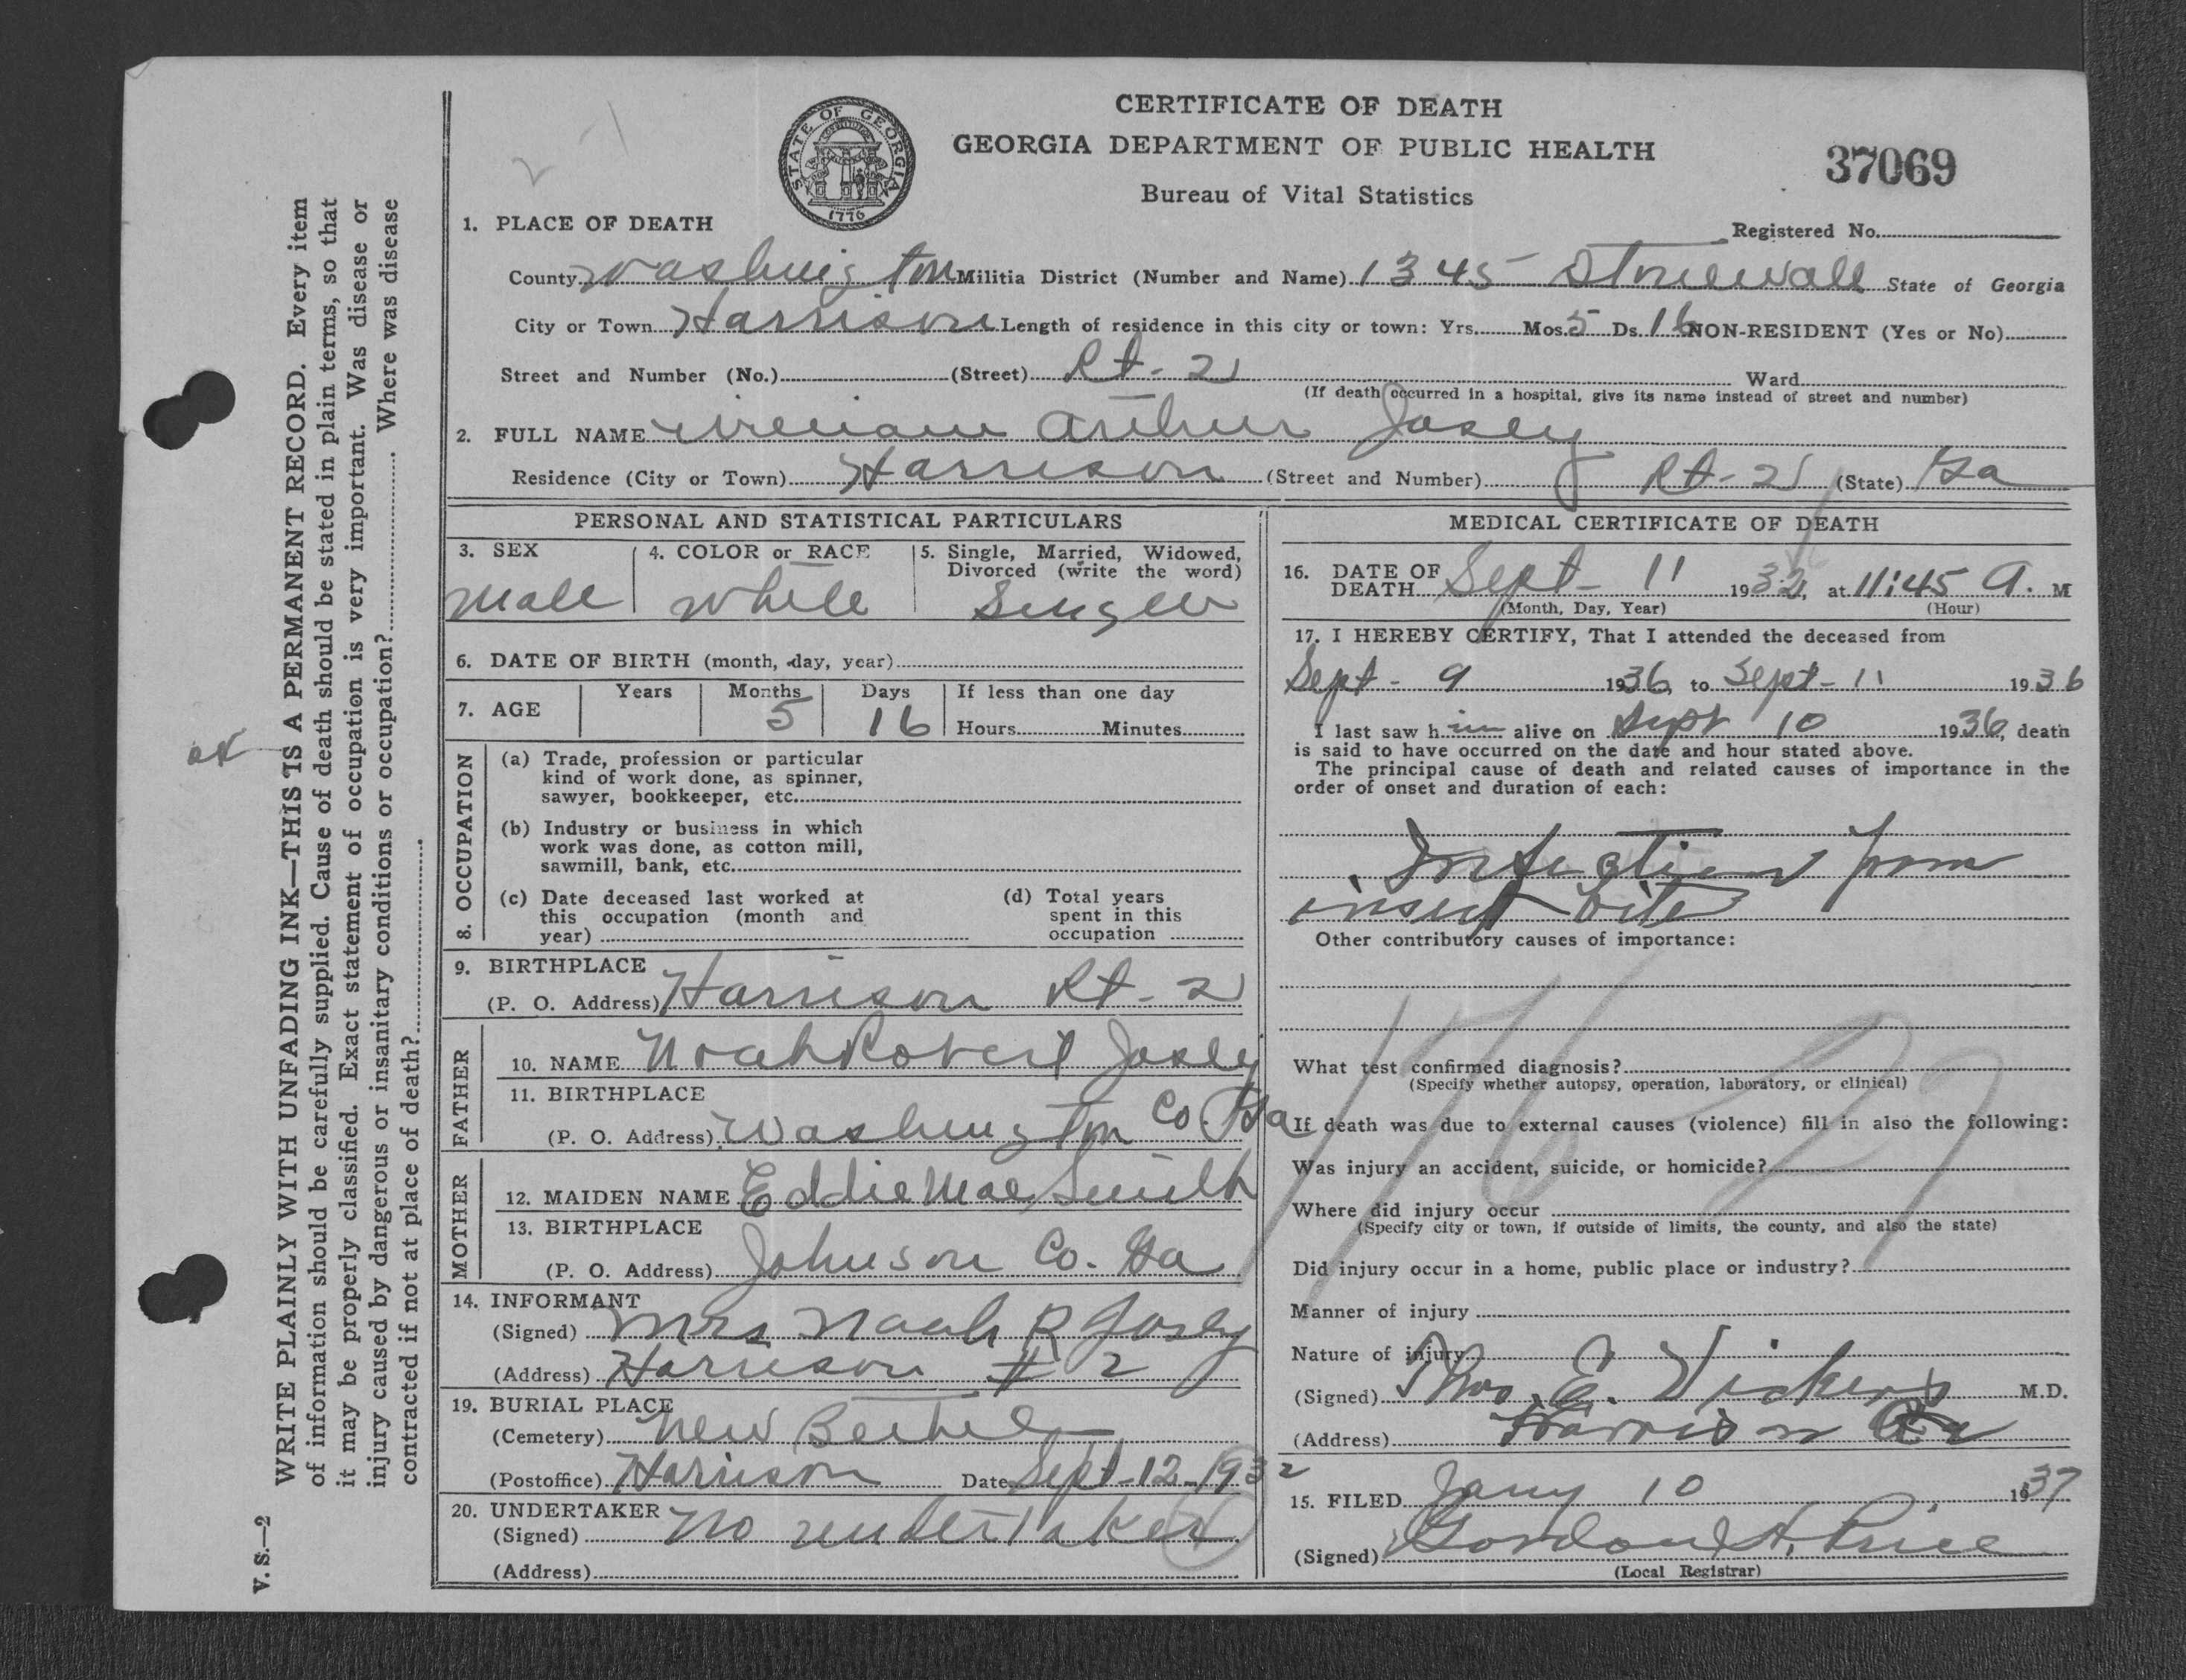 CERTIFICATE OF DEATH
GEORGIA DEPARTMENT OF PUBLIC HEALTH
Bureau of Vital Statistics
37069
STATE OF GEORGIA
1776
Registered No.
1. PLACE OF DEATH
County Washington Militia District (Number and Name) 1345 Stonewall State of Georgia
City or Town Harrison Length of residence in this city or town: Yrs. Mos. 5 Ds. 16 NON-RESIDENT (Yes or No)
Street and Number (No.) (Street) Rt-2 Ward
(If death occurred in a hospital, give its name instead of street and number)
2. FULL NAME William Arthur Josey
Residence (City or Town) Harrison (Street and Number) Rt-2 (State) Ga
PERSONAL AND STATISTICAL PARTICULARS
3. SEX
male
4. COLOR or RACE
white
5. Single, Married, Widowed, Divorced (write the word)
Single
6. DATE OF BIRTH (month, day, year)
7. AGE Years Months 5 Days 16 If less than one day
Hours Minutes
8. OCCUPATION
(a) Trade, profession or particular
kind of work done, as spinner,
sawyer, bookkeeper, etc.
(b) Industry or business in which
work was done, as cotton mill,
sawmill, bank, etc.
(c) Date deceased last worked at
this occupation (month and
year)
(d) Total years
spent in this
occupation
9. BIRTHPLACE
(P. O. Address) Harrison Rt-2
FATHER
10. NAME Noah Robert Josey
11. BIRTHPLACE
(P. O. Address) Washington Co. Ga
MOTHER
12. MAIDEN NAME Eddie Mae Smith
13. BIRTHPLACE
(P. O. Address) Johnson Co. Ga
14. INFORMANT
(Signed) Mrs Noah R Josey
(Address) Harrison # 2
19. BURIAL PLACE
(Cemetery) New Bethel
(Postoffice) Harrison Date Sept-12-1932
20. UNDERTAKER
(Signed) No undertaker
(Address)
MEDICAL CERTIFICATE OF DEATH
16. DATE OF DEATH Sept-11 1932, at 11:45 A. M
(Month, Day, Year) (Hour)
17. I HEREBY CERTIFY, That I attended the deceased from
Sept-9 1936, to Sept-11 1936
I last saw him alive on Sept 10 1936, death
is said to have occurred on the date and hour stated above.
The principal cause of death and related causes of importance in the
order of onset and duration of each:
Infection from
insect bite
Other contributory causes of importance:
What test confirmed diagnosis?
(Specify whether autopsy, operation, laboratory, or clinical)
If death was due to external causes (violence) fill in also the following:
Was injury an accident, suicide, or homicide?
Where did injury occur
(Specify city or town, if outside of limits, the county, and also the state)
Did injury occur in a home, public place or industry?
Manner of injury
Nature of injury
(Signed) Thos. E. Vickers M.D.
(Address) Harrison Ga
15. FILED Jany 10 1937
(Signed) Gordon H. Price
(Local Registrar)
V. S.—2
WRITE PLAINLY WITH UNFADING INK—THIS IS A PERMANENT RECORD. Every item
of information should be carefully supplied. Cause of death should be stated in plain terms, so that
it may be properly classified. Exact statement of occupation is very important. Was disease or
injury caused by dangerous or insanitary conditions or occupation? Where was disease
contracted if not at place of death?